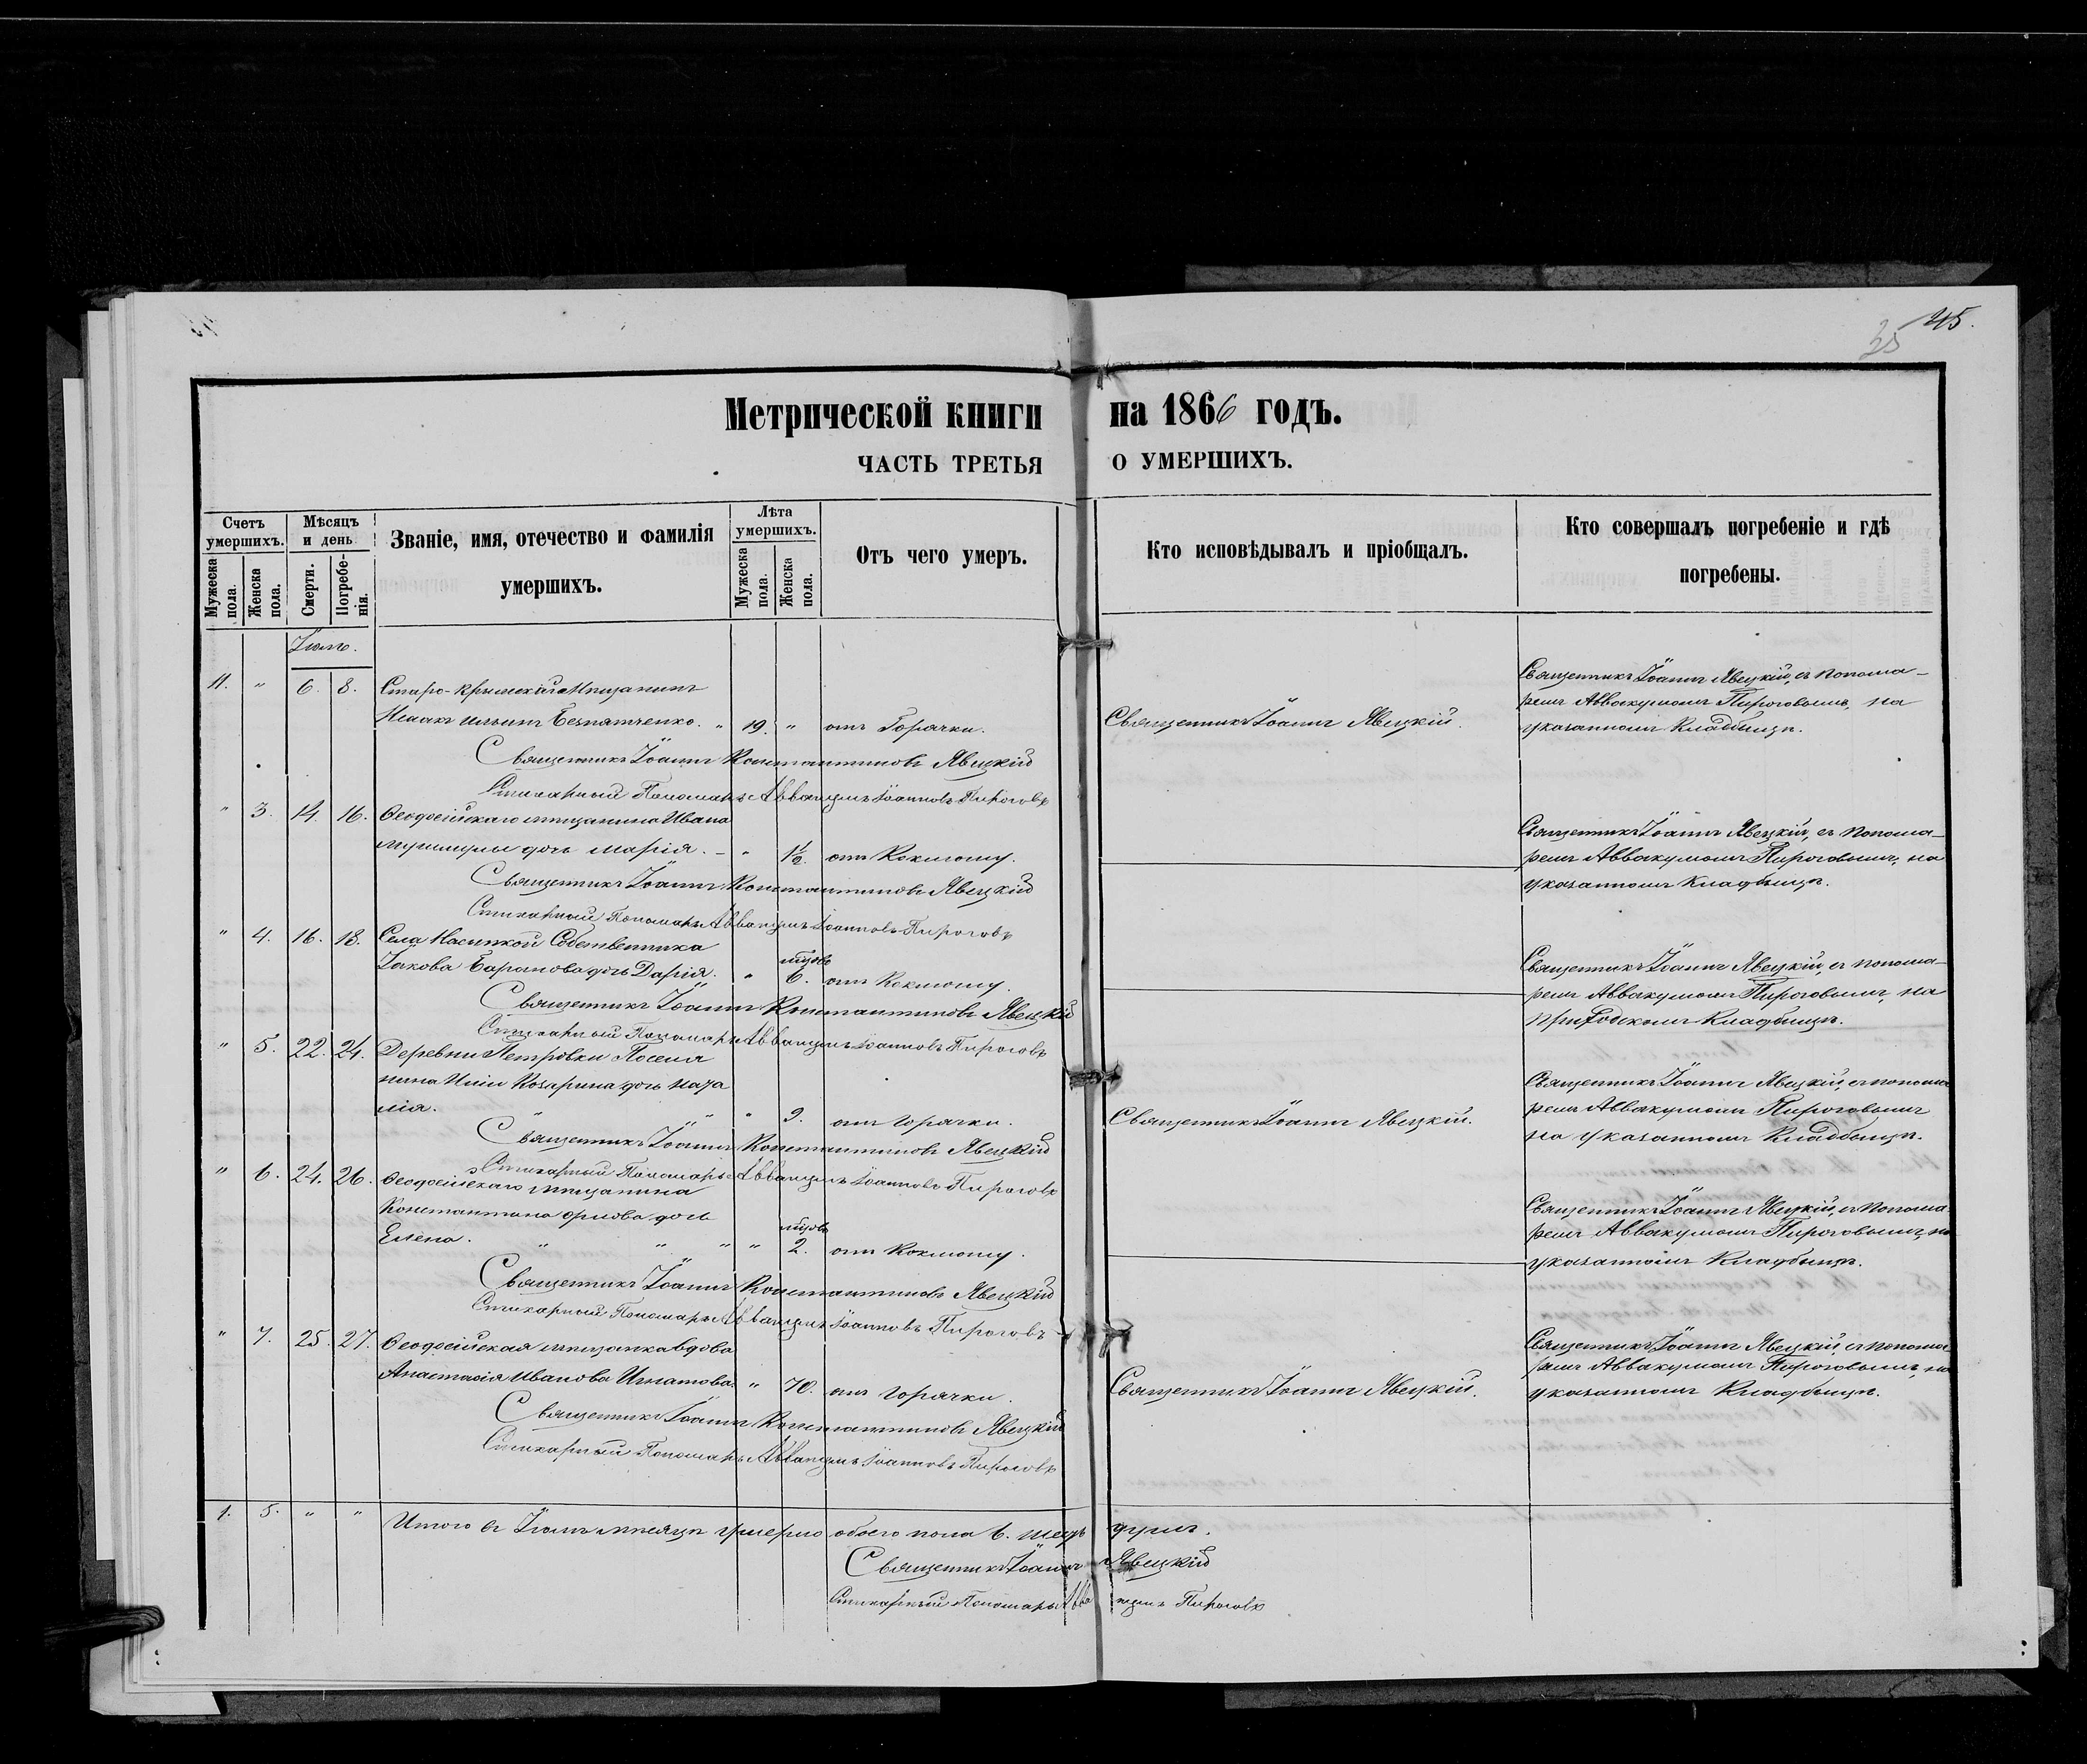 45.
35
Метрической книги на 1866 годъ.
ЧАСТЬ ТРЕТЬЯ О УМЕРШИХЪ.
Счетъ умершихъ.
Мужеска пола.
Женска пола.
Мѣсяцъ и день
Смерти.
Погребенія.
Званіе, имя, отечество и фамилія умершихъ.
Лѣта умершихъ.
Мужеска пола.
Женска пола.
Отъ чего умеръ.
Кто исповѣдывалъ и пріобщалъ.
Кто совершалъ погребеніе и гдѣ погребены.
Іюль.
11. " 6. 8. Старо-Крымскій Мѣщанинъ
Исаакъ Ильинъ Безпятченко. " 19. " отъ Горячки.
Священникъ Іоаннъ Явецкій.
Священникъ Іоаннъ Явецкій, съ понома-
ремъ Аввакумомъ Пироговымъ, на
указанномъ Кладбищѣ.
Священникъ Іоаннъ Константиновъ Явецкій
Стихарный Пономарь Аввакумъ Іоанновъ Пироговъ
" 3. 14. 16. Ѳеодосійскаго мѣщанина Ивана
дочь Марія. - " 1½. отъ Коклюшу.
Священникъ Іоаннъ Явецкій, съ понома-
ремъ Аввакумомъ Пироговымъ, на
указанномъ Кладбищѣ.
Священникъ Іоаннъ Константиновъ Явецкій
Стихарный Пономарь Аввакумъ Іоанновъ Пироговъ
" 4. 16. 18. Села Насыпкой Собственника
Іакова Баранова дочь Дарія. " мѣсяц. 6. отъ Коклюшу.
Священникъ Іоаннъ Явецкій, съ понома-
ремъ Аввакумомъ Пироговымъ, на
приходскомъ Кладбищѣ.
Священникъ Іоаннъ Константиновъ Явецкій
Стихарный Пономарь Аввакумъ Іоанновъ Пироговъ
" 5. 22. 24. Деревни Петровки Поселя
нина Иліи дочь Ната
лія. " " " 9. отъ горячки.
Священникъ Іоаннъ Явецкій.
Священникъ Іоаннъ Явецкій, съ понома
ремъ Аввакумомъ Пироговымъ
на указанномъ Кладбищѣ.
Священникъ Іоаннъ Константиновъ Явецкій
Стихарный Пономарь Аввакумъ Іоанновъ Пироговъ
" 6. 24. 26. Ѳеодосійскаго мѣщанина
Константина Орлова дочь
Елена. " " " " мѣсяц. 2. отъ Коклюшу.
Священникъ Іоаннъ Явецкій, съ понома
ремъ Аввакумомъ Пироговымъ, на
указанномъ Кладбищѣ.
Священникъ Іоаннъ Константиновъ Явецкій
Стихарный Пономарь Аввакумъ Іоанновъ Пироговъ
" 7. 25. 27. Ѳеодосійская мѣщанка вдова
Анастасія Иванова Игнатова. " 70. отъ горячки.
Священникъ Іоаннъ Явецкій.
Священникъ Іоаннъ Явецкій, съ понома
ремъ Аввакумомъ Пироговымъ, на
указанномъ Кладбищѣ.
Священникъ Іоаннъ Константиновъ Явецкій
Стихарный Пономарь Аввакумъ Іоанновъ Пироговъ
1. 5. " " Итого въ Іюлѣ мѣсяцѣ умерло обоего пола 6. шесть душъ.
Священникъ Іоаннъ Явецкій
Стихарный Пономарь Аввакумъ Пироговъ